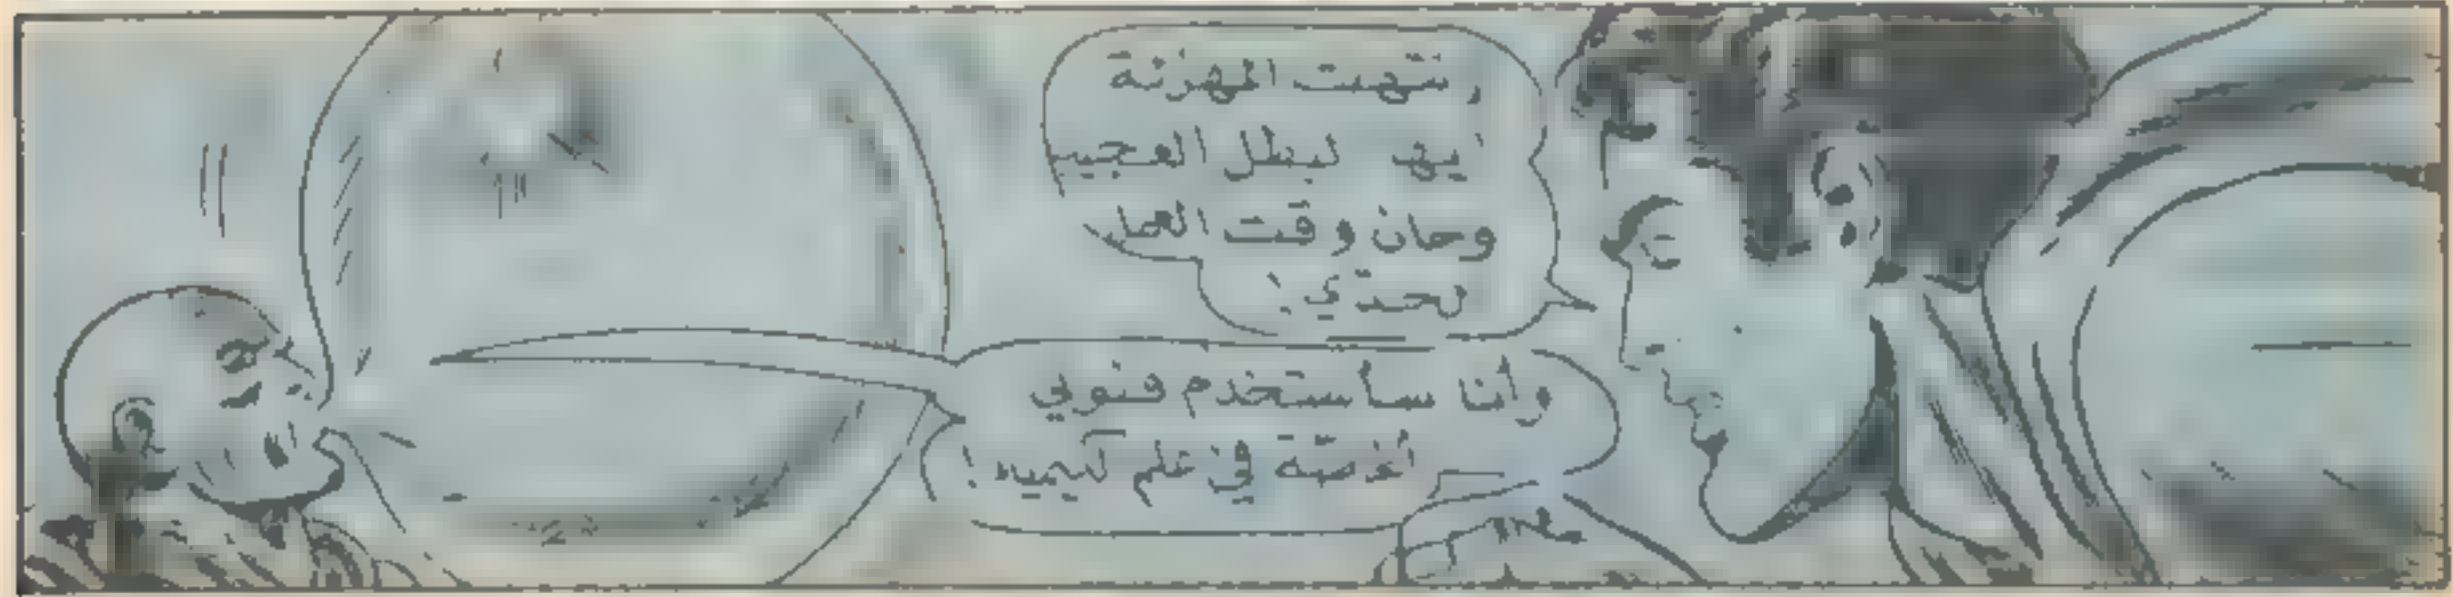 انتهت المهزلة
أيها البطل العجيب
وحان وقت العمل
لجدّي!
وأنا سأستخدم فنوني
الخاصّة في علم الكيمياء!